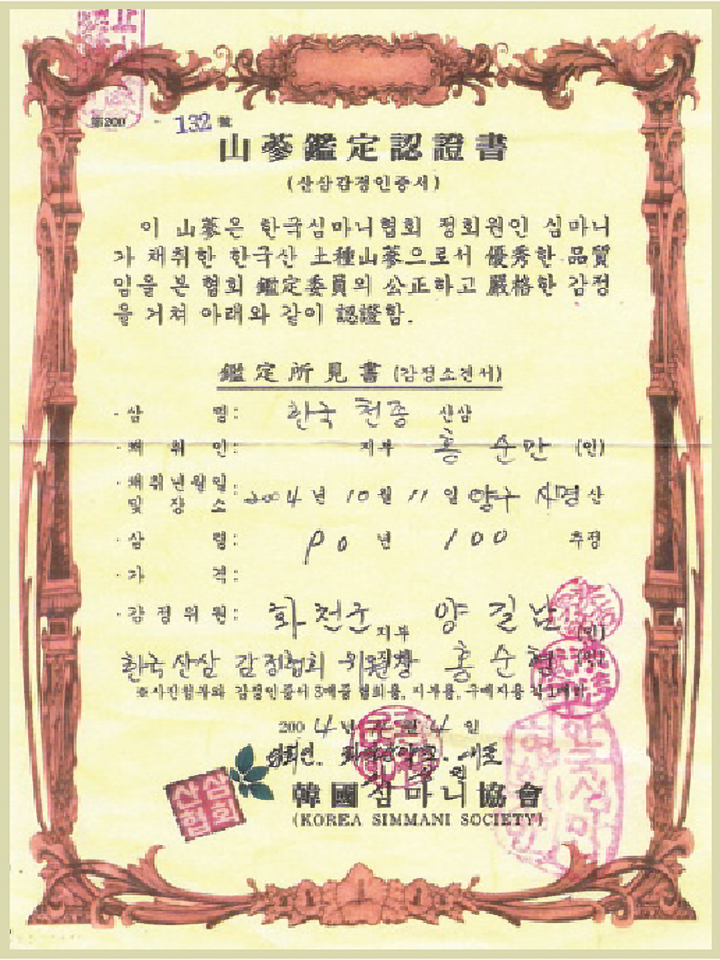 第200 - 132 號
山蔘鑑定認證書
(산삼감정인증서)
이 山蔘은 한국심마니협회 정회원인 심마니
가 채취한 한국산 土種山蔘으로서 優秀한 品質
임을 본 협회 鑑定委員의 公正하고 嚴格한 감정
을 거쳐 아래와 같이 認證함.
鑑定所見書 (감정소견서)
·삼 명: 한국 천종 산삼
·채 취 인: 지부 홍 순만 (인)
·채취년월일
및 장 소: 2004년 10월 11일 양구 사명산
·삼 령: 90년 100 추정
·가 격:
·감정위원: 화천군 지부 양길남 (인)
한국산삼 감정협회 위원장 홍순
※사진첨부와 감정인증서 3매중 협회용, 지부용, 구매자용 각 1매
2004년 월 4일
韓國심마니協會
(KOREA SIMMANI SOCIETY)
산삼
협회